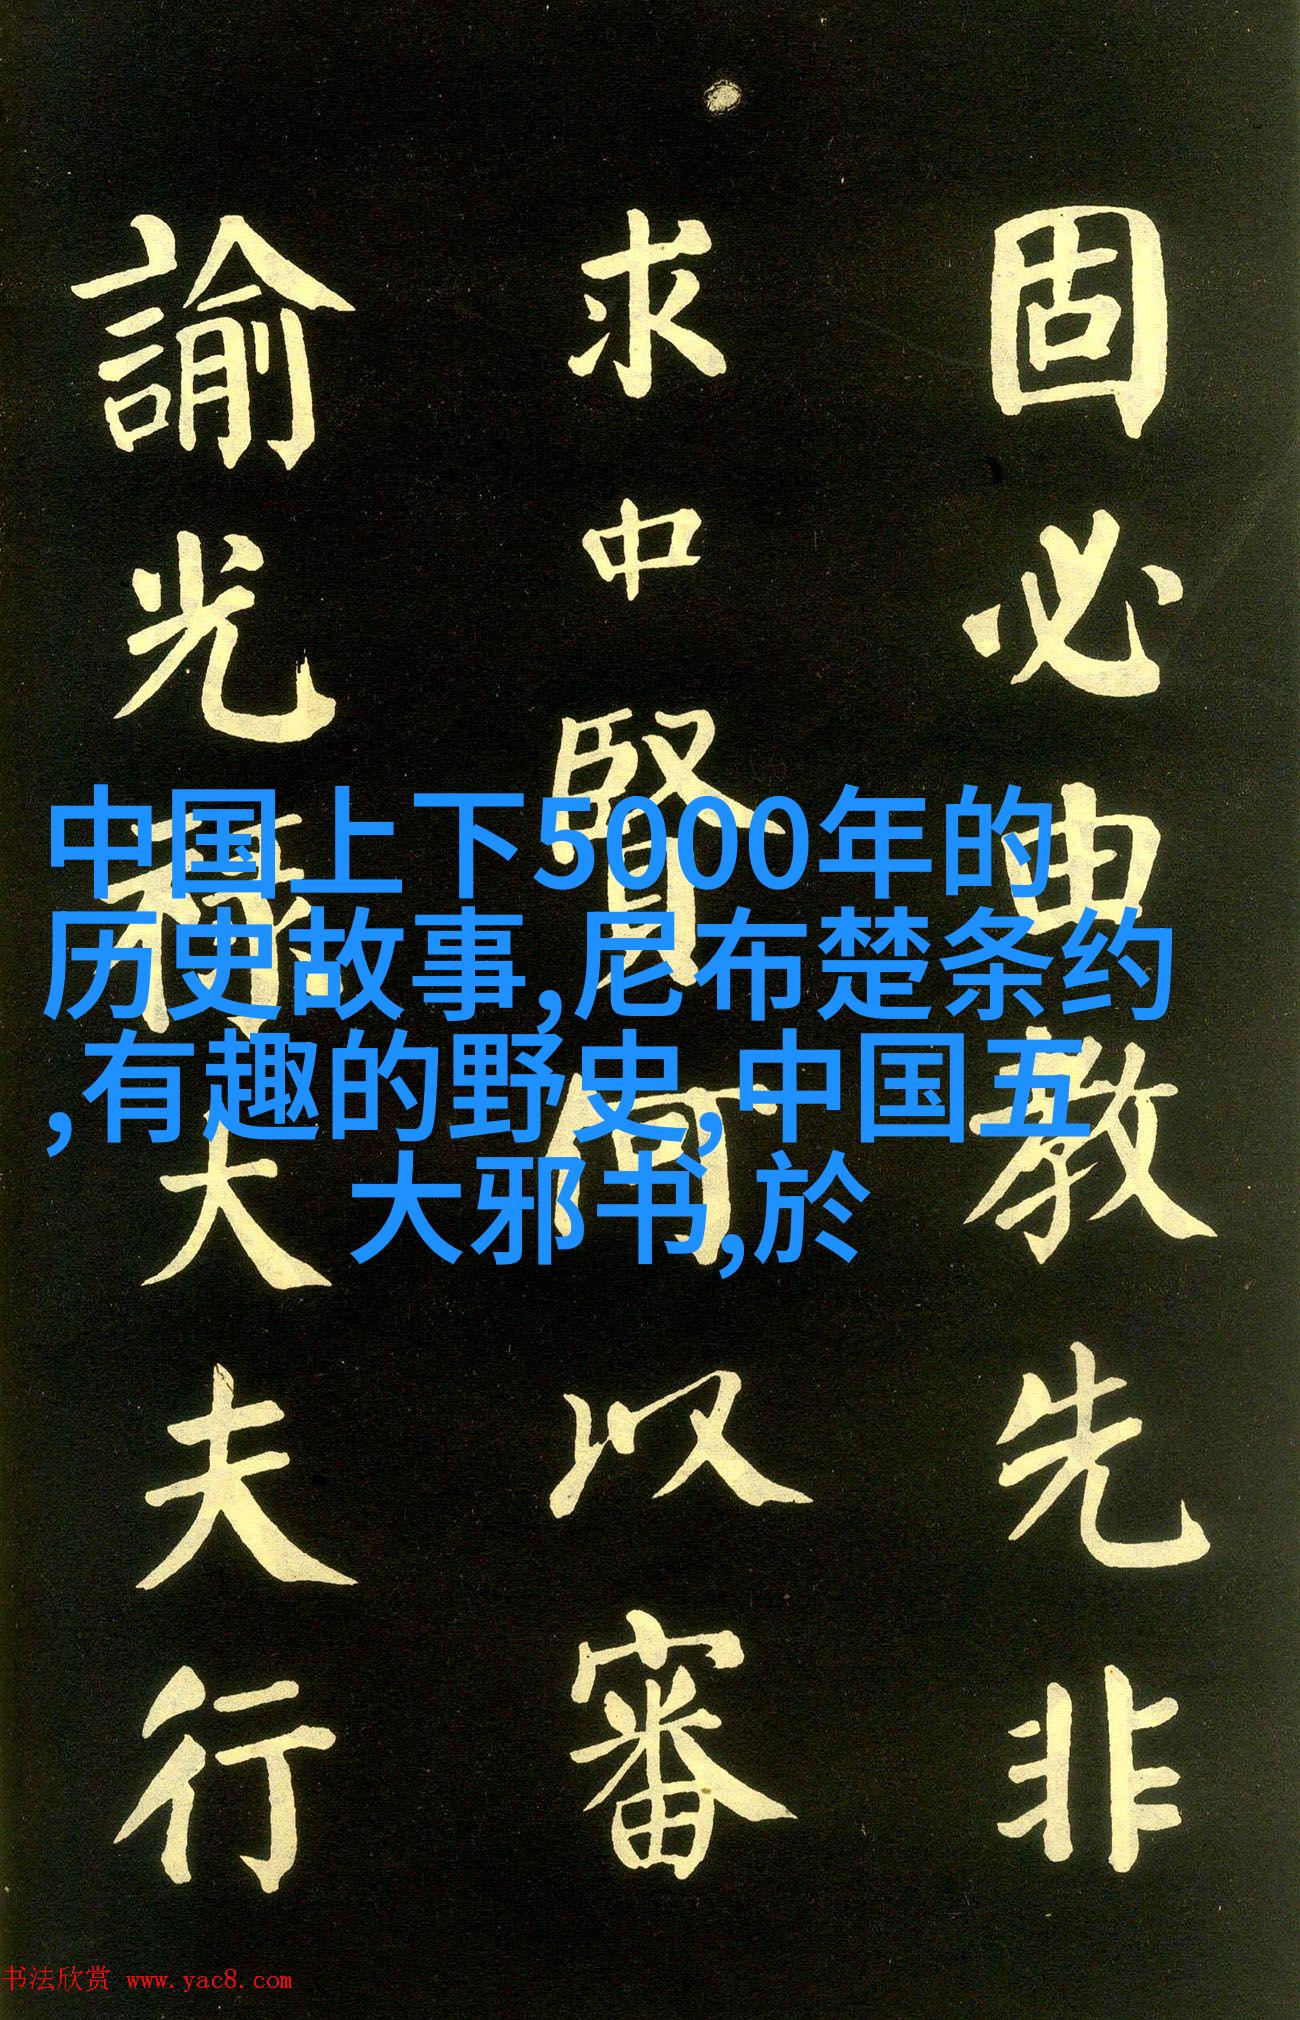 固必由教先非
求中賢何以審
諭光祿大夫行
中国上下5000年的
历史故事,尼布楚条约
,有趣的野史,中国五
大邪书,於
书法欣赏 www.yac8.com